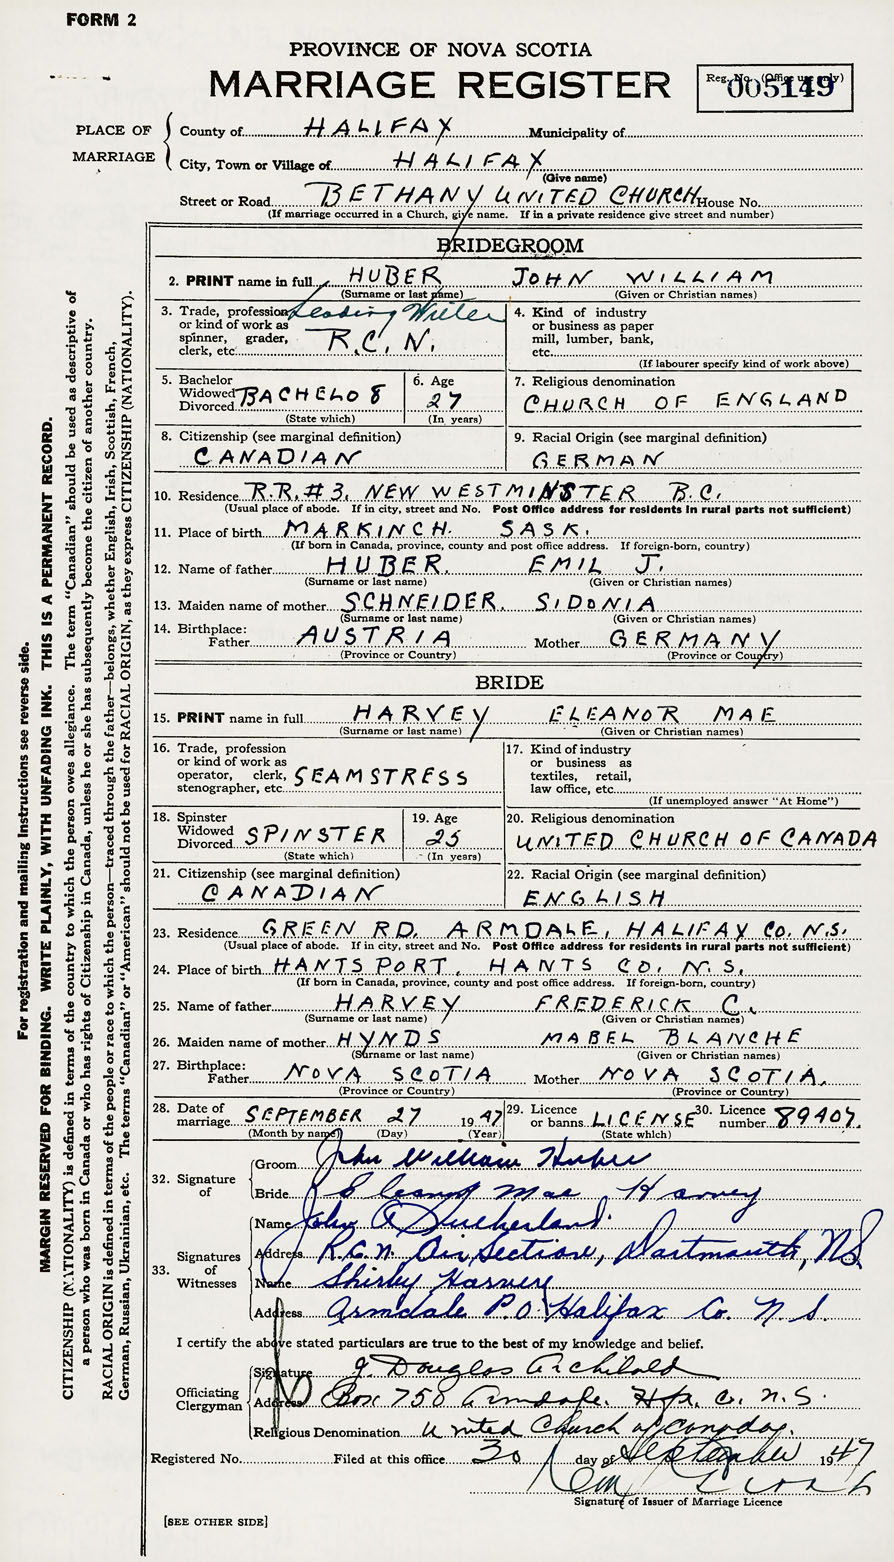 FORM 2
PROVINCE OF NOVA SCOTIA
MARRIAGE REGISTER
Reg. No. (Office use only)
005149
PLACE OF MARRIAGE
County of HALIFAX Municipality of
City, Town or Village of HALIFAX
(Give name)
Street or Road BETHANY UNITED CHURCH House No.
(If marriage occurred in a Church, give name. If in a private residence give street and number)
BRIDEGROOM
2. PRINT name in full HUBER JOHN WILLIAM
(Surname or last name) (Given or Christian names)
3. Trade, profession or kind of work as spinner, grader, clerk, etc. Leading Writer R.C.N.
4. Kind of industry or business as paper mill, lumber, bank, etc.
(If labourer specify kind of work above)
5. Bachelor Widowed Divorced BACHELOR
(State which)
6. Age 27
(In years)
7. Religious denomination
CHURCH OF ENGLAND
8. Citizenship (see marginal definition)
CANADIAN
9. Racial Origin (see marginal definition)
GERMAN
10. Residence R.R.#3, NEW WESTMINSTER B.C.
(Usual place of abode. If in city, street and No. Post Office address for residents in rural parts not sufficient)
11. Place of birth MARKINCH. SASK.
(If born in Canada, province, county and post office address. If foreign-born, country)
12. Name of father HUBER. EMIL J.
(Surname or last name) (Given or Christian names)
13. Maiden name of mother SCHNEIDER. SIDONIA
(Surname or last name) (Given or Christian names)
14. Birthplace: Father AUSTRIA Mother GERMANY
(Province or Country) (Province or Country)
BRIDE
15. PRINT name in full HARVEY ELEANOR MAE
(Surname or last name) (Given or Christian names)
16. Trade, profession or kind of work as operator, clerk, stenographer, etc. SEAMSTRESS
17. Kind of industry or business as textiles, retail, law office, etc.
(If unemployed answer "At Home")
18. Spinster Widowed Divorced SPINSTER
(State which)
19. Age 25
(In years)
20. Religious denomination
UNITED CHURCH OF CANADA
21. Citizenship (see marginal definition)
CANADIAN
22. Racial Origin (see marginal definition)
ENGLISH
23. Residence GREEN RD. ARMDALE, HALIFAX CO. N.S.
(Usual place of abode. If in city, street and No. Post Office address for residents in rural parts not sufficient)
24. Place of birth HANTSPORT, HANTS CO. N.S.
(If born in Canada, province, county and post office address. If foreign-born, country)
25. Name of father HARVEY FREDERICK C.
(Surname or last name) (Given or Christian names)
26. Maiden name of mother HYNDS MABEL BLANCHE
(Surname or last name) (Given or Christian names)
27. Birthplace: Father NOVA SCOTIA Mother NOVA SCOTIA.
(Province or Country) (Province or Country)
28. Date of marriage SEPTEMBER 27 1947
(Month by name) (Day) (Year)
29. Licence or banns LICENSE
(State which)
30. Licence number 89407.
32. Signature of
Groom John William Huber
Bride Eleanor Mae Harvey
33. Signatures of Witnesses
Name John A Sutherland.
Address R.C.N. Air Section, Dartmouth, N.S.
Name Shirley Harvey
Address Armdale P.O. Halifax Co. N.S.
I certify the above stated particulars are true to the best of my knowledge and belief.
Officiating Clergyman
Signature J. Douglas Archibald
Address Box 750 Armdale. Hfx. C. N.S.
Religious Denomination United Church of Canada.
Registered No. Filed at this office 30 day of September 1947
Signature of Issuer of Marriage Licence
[SEE OTHER SIDE]
For registration and mailing instructions see reverse side.
MARGIN RESERVED FOR BINDING. WRITE PLAINLY, WITH UNFADING INK. THIS IS A PERMANENT RECORD.
CITIZENSHIP (NATIONALITY) is defined in terms of the country to which the person owes allegiance. The term "Canadian" should be used as descriptive of
a person who was born in Canada or who has rights of Citizenship in Canada, unless he or she has subsequently become the citizen of another country.
RACIAL ORIGIN is defined in terms of the people or race to which the person—traced through the father—belongs, whether English, Irish, Scottish, French,
German, Russian, Ukrainian, etc. The terms "Canadian" or "American" should not be used for RACIAL ORIGIN, as they express CITIZENSHIP (NATIONALITY).